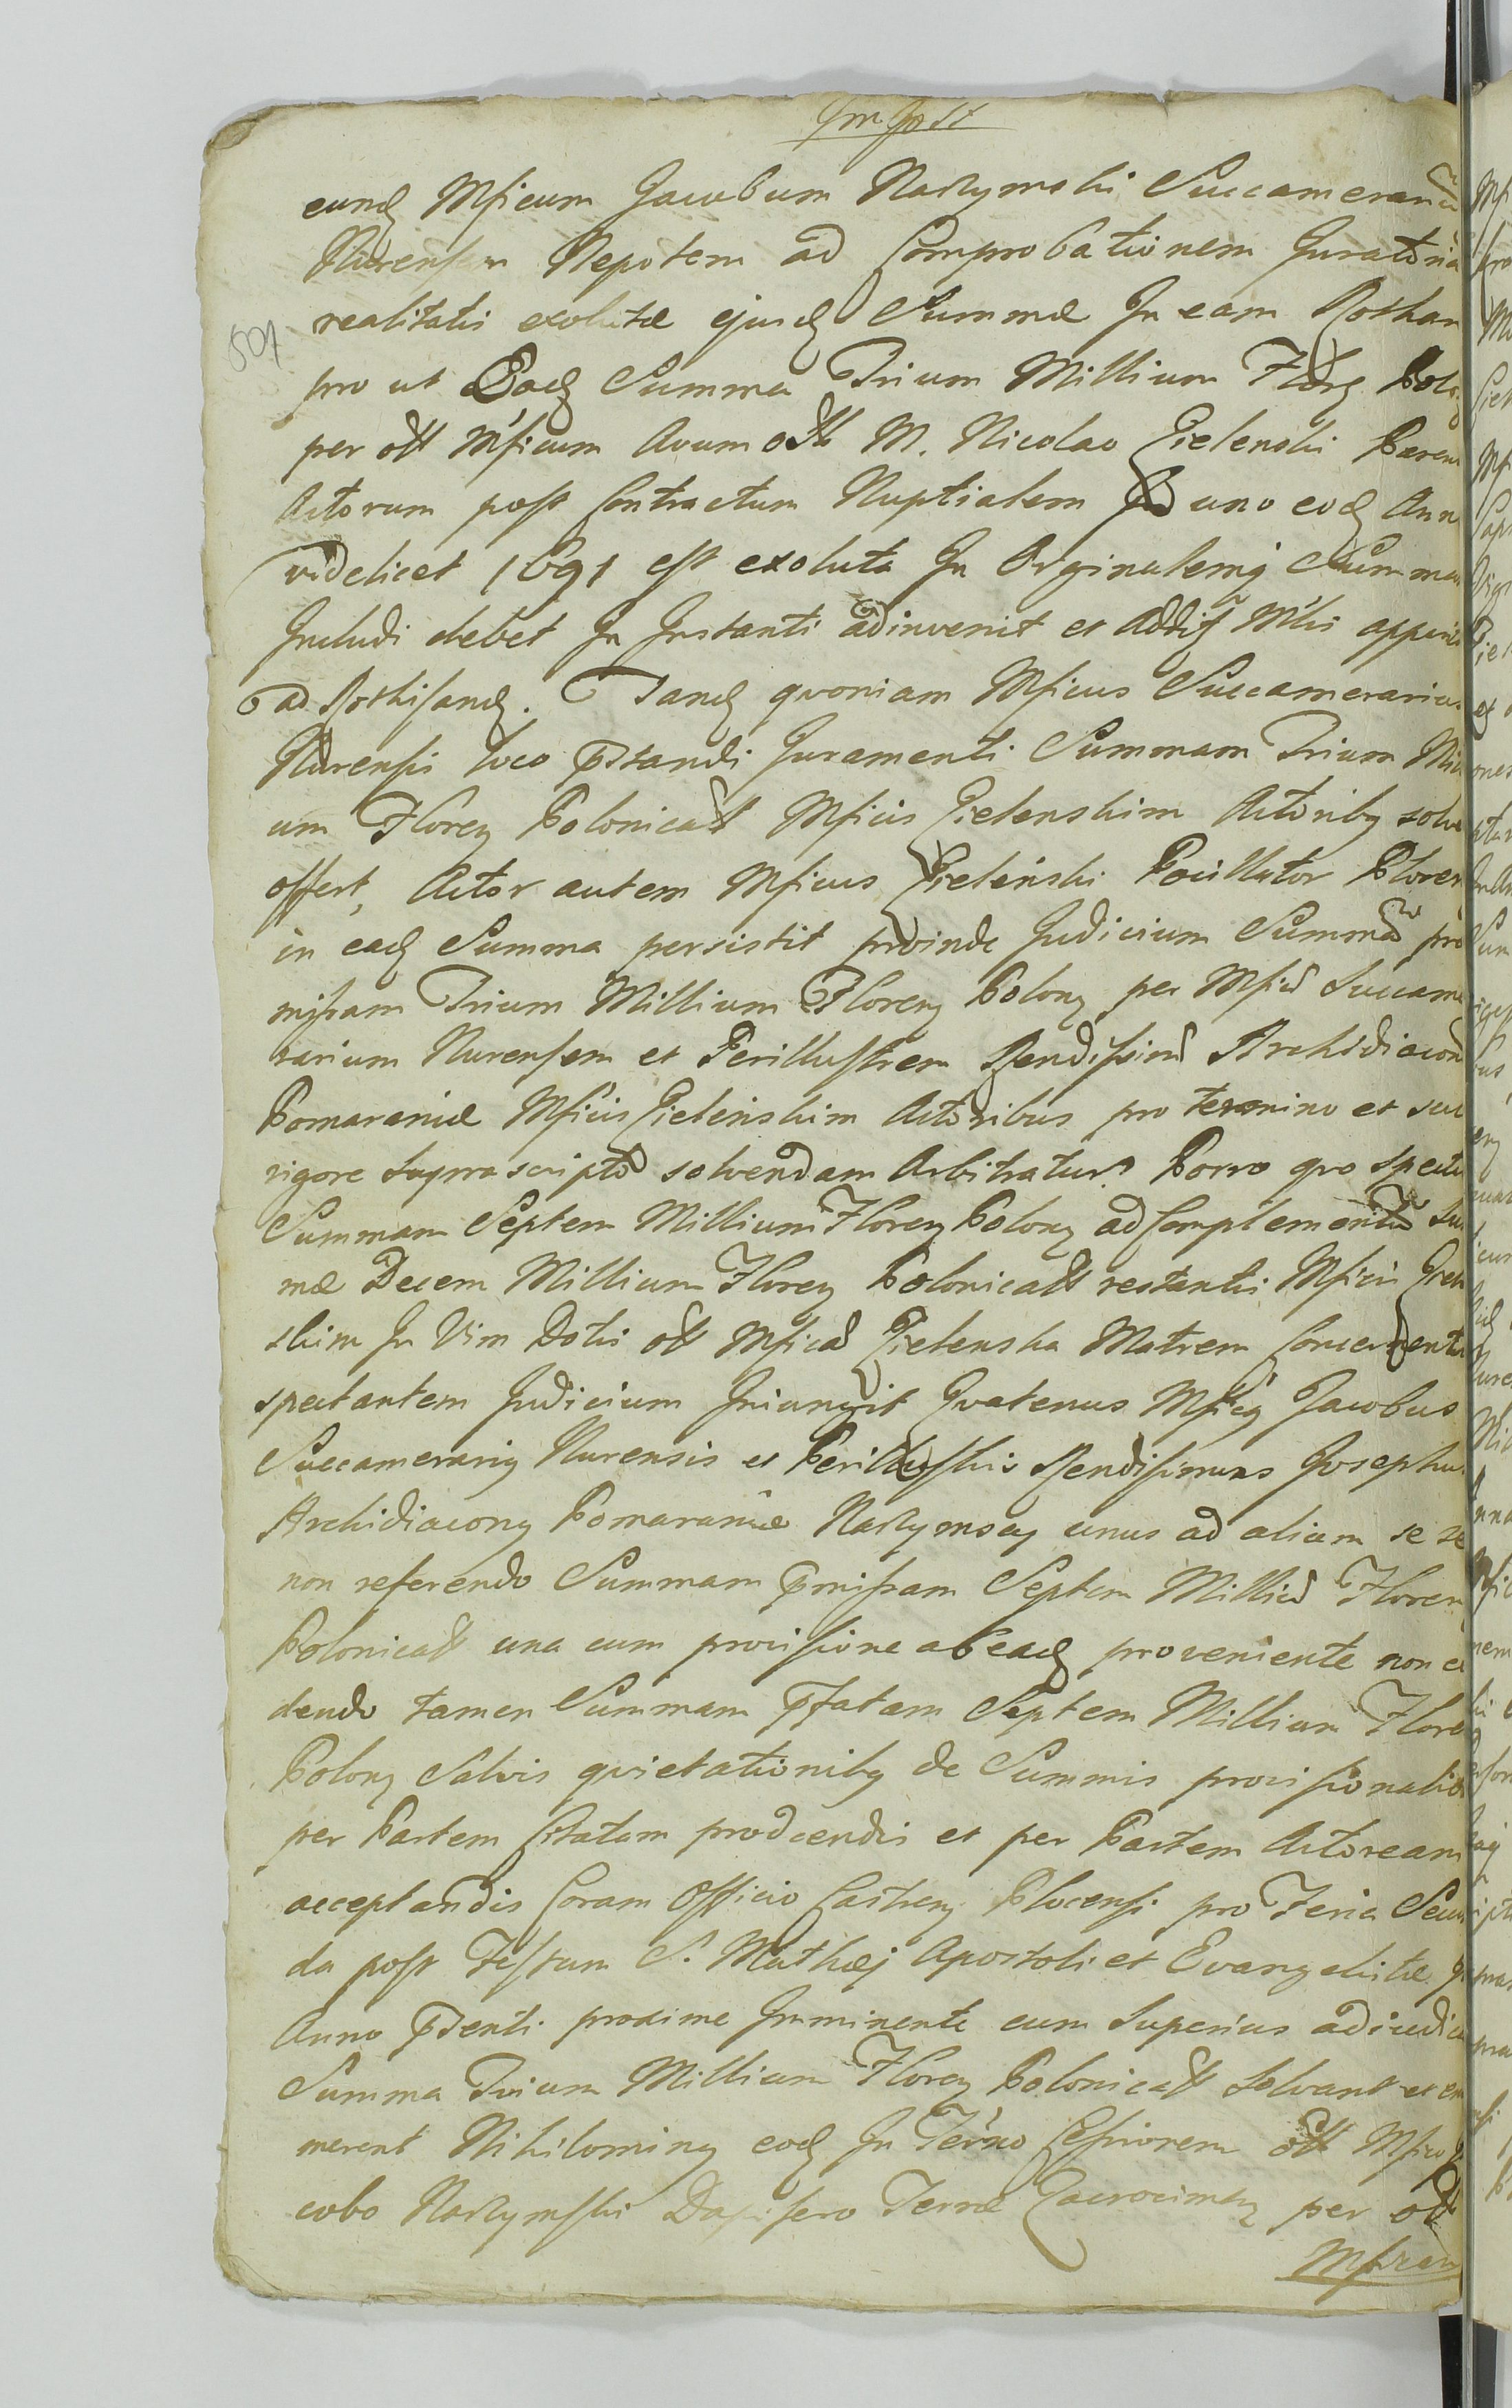 eund Mficum Jacobum Nastymski Succamerariũ
Nurensem Nepotem ad Comprobationem Juratoriã
507
realitatis exolutæ ejusd Summæ In eam
pro ut Ead Summa Trium Millium Flor Polo
per Mficum Avum M. Nicolao Cielenski Paren
Actorum post Contractum Nuptialem uno eod Ann
videlicet 1691 est exoluta In Orginalemq Summam
Includi debet In Instanti adinvenit et
ad. Tand qvoniam Mficus Succamerarius
Nurensis loco pstandi Juramenti Summam Trium Mill
um Floren Polonica Mficis Cielenskim Actorib solve
offert, Actor autem Mficus Cielenski Pocillator Ploren
in ead Summa persistit proinde Judicium Summã prę
missam Trium Millium Floren Polon per Mficũ Succame
rarium Nurensem et Perillustrem Rendissimũ Archidiaconũ
Pomaraniæ Mficis Cielenskim Actoribus pro termino et sub
rigore supra scripto solvendam Arbitratur. Porro qvo spectat
Summam Septem Millium Floren Polon ad Complementũ Su
mæ Decem Millium Floren Polonica restantis Mficis Ciele
skim In Vim Dotis Mficã Cielenska Matrem Concernentis
spectantem Judicium Iniungit Qvatenus Mfic Jacobus
Succamerari Nurensis et Perillustris Rendissimus Josephus
Archidiacon Pomaraniæ unus ad alium se se
non referendo Summam pmissam Septem Milliũ Floren
Polonica una cum provisione ab ead proveniente non ex
dendo tamen Summam pfatam Septem Millium Flore
Polon Salvis qvietationib de Summis provisionalib
per Partem Citatam producendis et per Partem Actoream
acceptandis Coram Officio Castren Plocensi pro Feria Secun
da post Festum S. Mathæj Apostoli et Evangelistæ
Anno psenti proxime Imminente cum Superius adiudica
Summa Trium Millium Floren Polonica Solvant et e
merent Nihilomin eod In Term̃o
cobo Dapifero Terræ Zacrocimen per